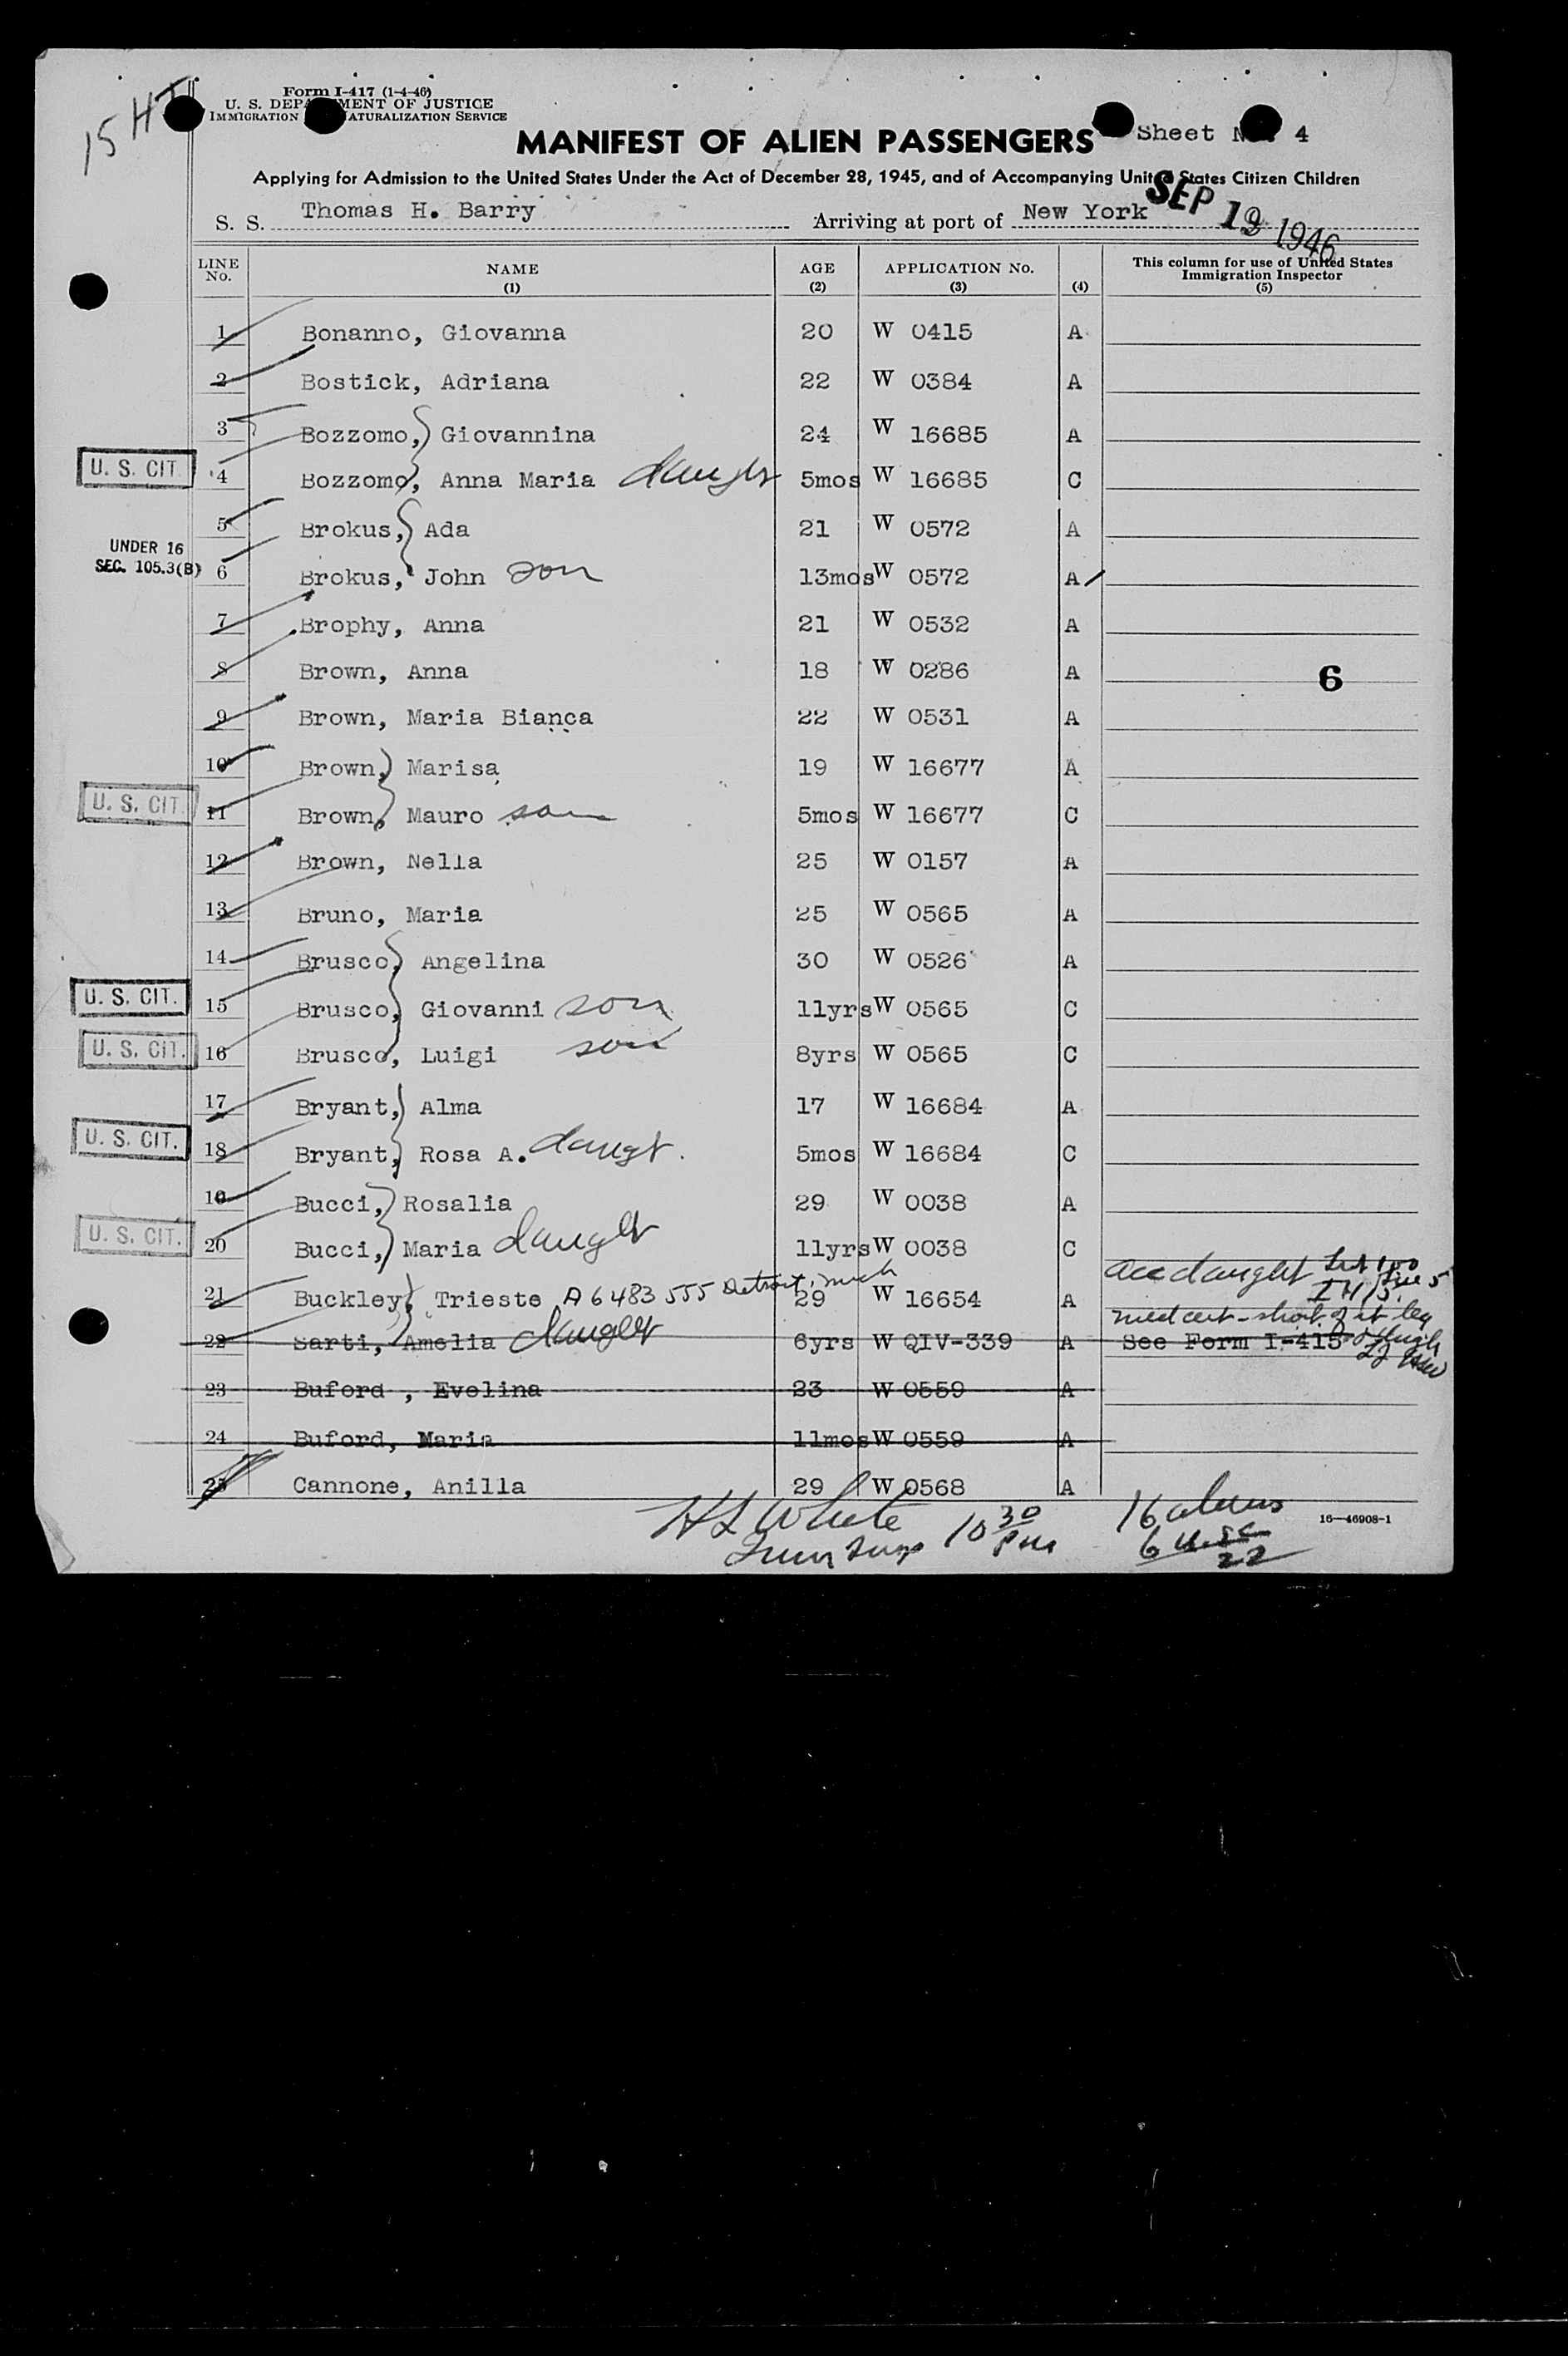 15 HT
Form I-417 (1-4-46)
U. S. DEPA MENT OF JUSTICE
IMMIGRATION ATURALIZATION SERVICE
MANIFEST OF ALIEN PASSENGERS Sheet 4
Applying for Admission to the United States Under the Act of December 28, 1945, and of Accompanying United States Citizen Children
S. S. Thomas H. Barry Arriving at port of New York SEP 1946
LINE No. NAME (1) AGE (2) APPLICATION No. (3) (4) This column for use of United States Immigration Inspector (5)
1 Bonanno, Giovanna 20 W 0415 A
2 Bostick, Adriana 22 W 0384 A
3 Bozzomo, Giovannina 24 W 16685 A
U. S. CIT. 4 Bozzomo, Anna Maria daught 5mos W 16685 C
5 Brokus, Ada 21 W 0572 A
UNDER 16
SEC. 105.3(B) 6 Brokus, John son 13mos W 0572 A
7 Brophy, Anna 21 W 0532 A
8 Brown, Anna 18 W 0286 A 6
9 Brown, Maria Bianca 22 W 0531 A
10 Brown, Marisa 19 W 16677 A
U. S. CIT. 11 Brown, Mauro son 5mos W 16677 C
12 Brown, Nella 25 W 0157 A
13 Bruno, Maria 25 W 0565 A
14 Brusco, Angelina 30 W 0526 A
U. S. CIT. 15 Brusco, Giovanni son 11yrs W 0565 C
U. S. CIT. 16 Brusco, Luigi son 8yrs W 0565 C
17 Bryant, Alma 17 W 16684 A
U. S. CIT. 18 Bryant, Rosa A. daugt. 5mos W 16684 C
19 Bucci, Rosalia 29 W 0038 A
U. S. CIT. 20 Bucci, Maria daught 11yrs W 0038 C
21 Buckley, Trieste A6483555 Detroit, Mich 29 W 16654 A acc daught
med cert - short of rt leg
22 Sarti, Amelia daught 6yrs W QIV-339 A See Form I-415
23 Buford , Evelina 23 W 0559 A
24 Buford, Maria 11mos W 0559 A
25 Cannone, Anilla 29 W 0568 A
H L White 10 30 PM 16 aliens 16—46908-1
Imm Insp 6 USC
22